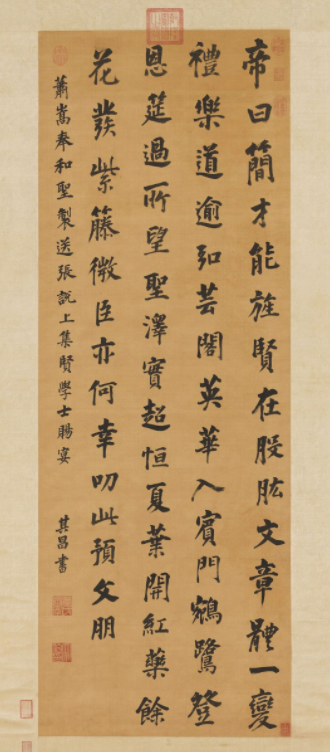 帝曰簡才能旌賢在股肱文章體一變
禮樂道逾弘芸閣英華入賓門鵷鷺登
恩筵過所望聖澤實超恒夏葉開紅藥餘
花發紫藤微臣亦何幸叨此預文朋
蕭嵩奉和聖製送張說上集賢學士賜宴 其昌書